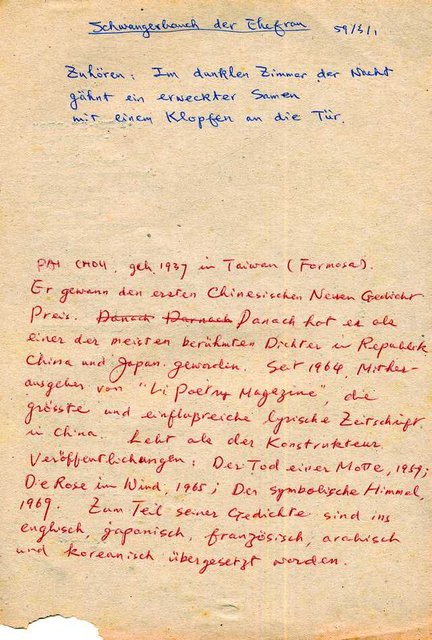 Schwangerbauch der Ehefrau 59/3/1
Zuhören: Im dunklen Zimmer der Nacht
gähnt ein erweckter Samen
mit einem Klopfen an die Tür.
PAI CHOU, geh. 1937 in Taiwan (Formosa).
Er gewann den ersten Chinesischen Neuen Gedicht
Preis. Danach Darnach Danach hat es als
einer der meisten berühmten Dichter in Republik
China und Japan geworden. Seit 1964, Mither-
ausgeber von "Li Poetry Magazine", die
grösste und einflußreiche lyrische Zeitschrift
in China. Lebt als der Konstrukteur.
Veröffentlichungen: Der Tod einer Motte, 1959;
Die Rose im Wind, 1965; Der symbolische Himmel,
1969. Zum Teil seiner Gedichte sind ins
englisch, japanisch, französisch, arabisch
und koreanisch übergesetzt worden.